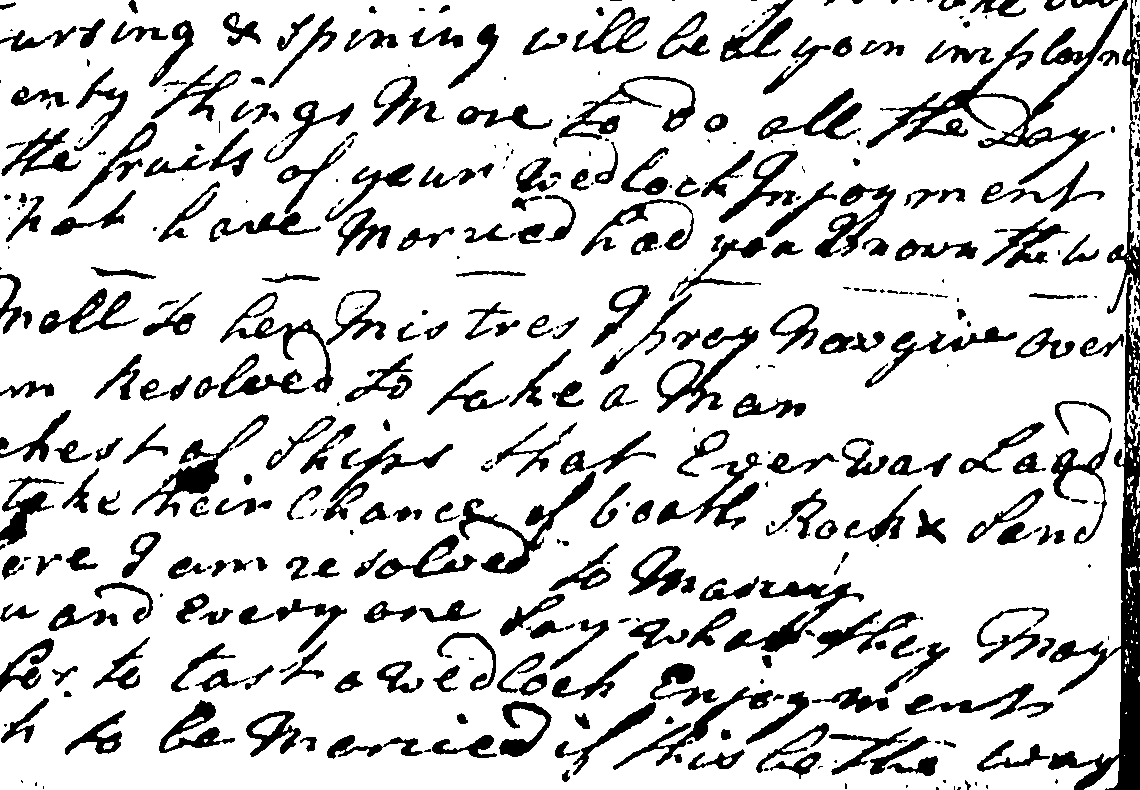 ursing & spining will be al your imploym
enty things More to do all the Day
the fruits of your wedlock Injoyment
not have Married had you known the wa
Moll to her Mistres I pray Now give over
am Resolved to take a Man
chest of Ships that Ever was Laad
take their Chance of boath Rock & Sand
ore I am resolved to Marry
u and every one Say what they May
for to tast a wedlock Enjoyment
h to be Married if this be the way